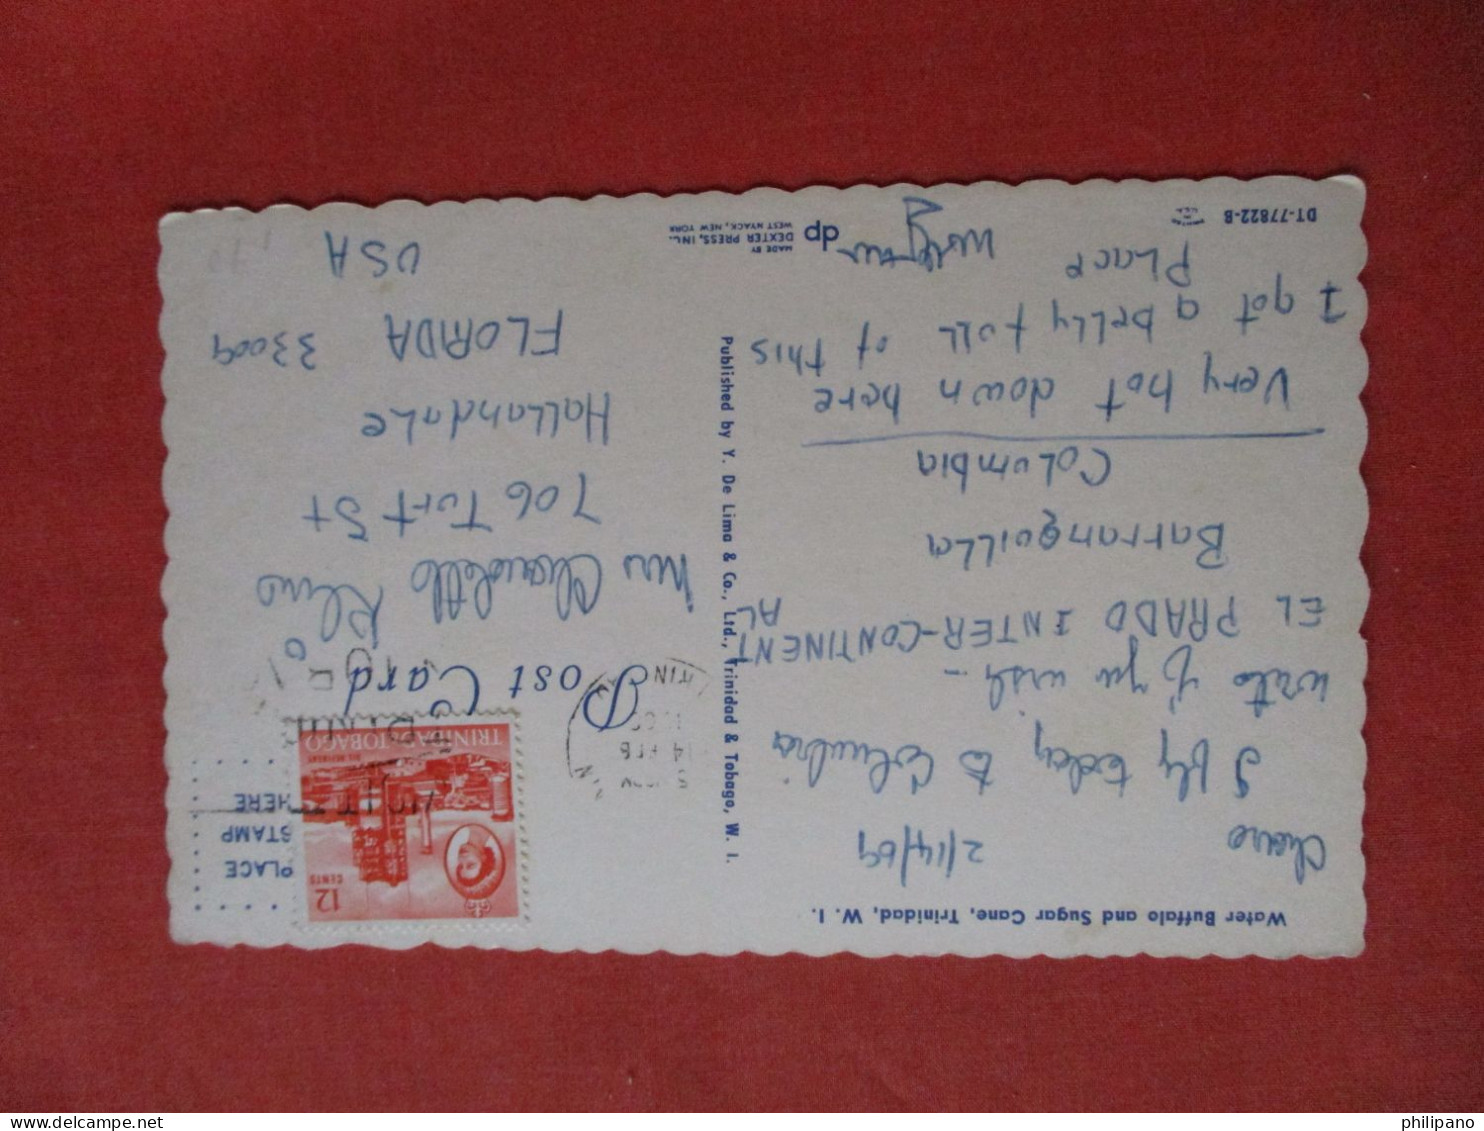 Water Buffalo and Sugar Cane, Trinidad, W. I.
2/14/69
I fly today to Columbia
write if you wish -
EL PRADO INTER-CONTINENT
AL
Barranquilla
Columbia
Very hot down here
I got a belly full of this
Place
DT-77822-B
Published by Y. De Lima & Co., Ltd., Trinidad & Tobago, W. I.
dp
MADE BY
DEXTER PRESS, INC.
WEST NYACK, NEW YORK
Post Card
PLACE
STAMP
HERE
12
CENTS
TRINIDAD & TOBAGO
14 FEB
Mrs Charlotte
706 Turf St
Hallandale
FLORIDA 33009
USA
philipano